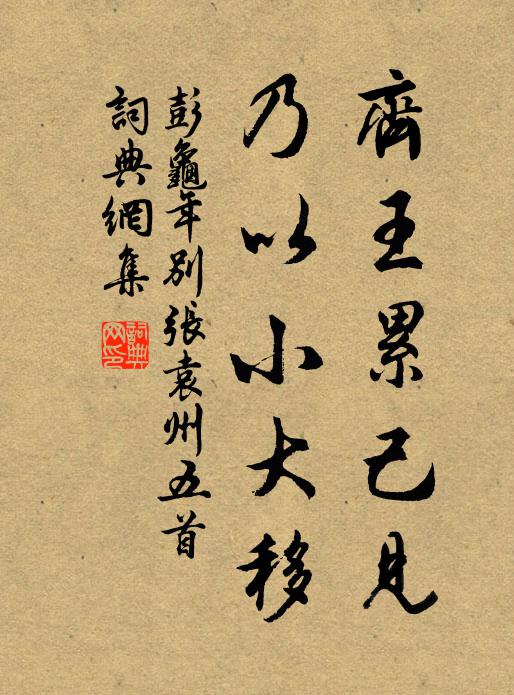 齊王累己見
乃以小大移
彭龜年別張袁州五首
詞典網集
詞典
网印